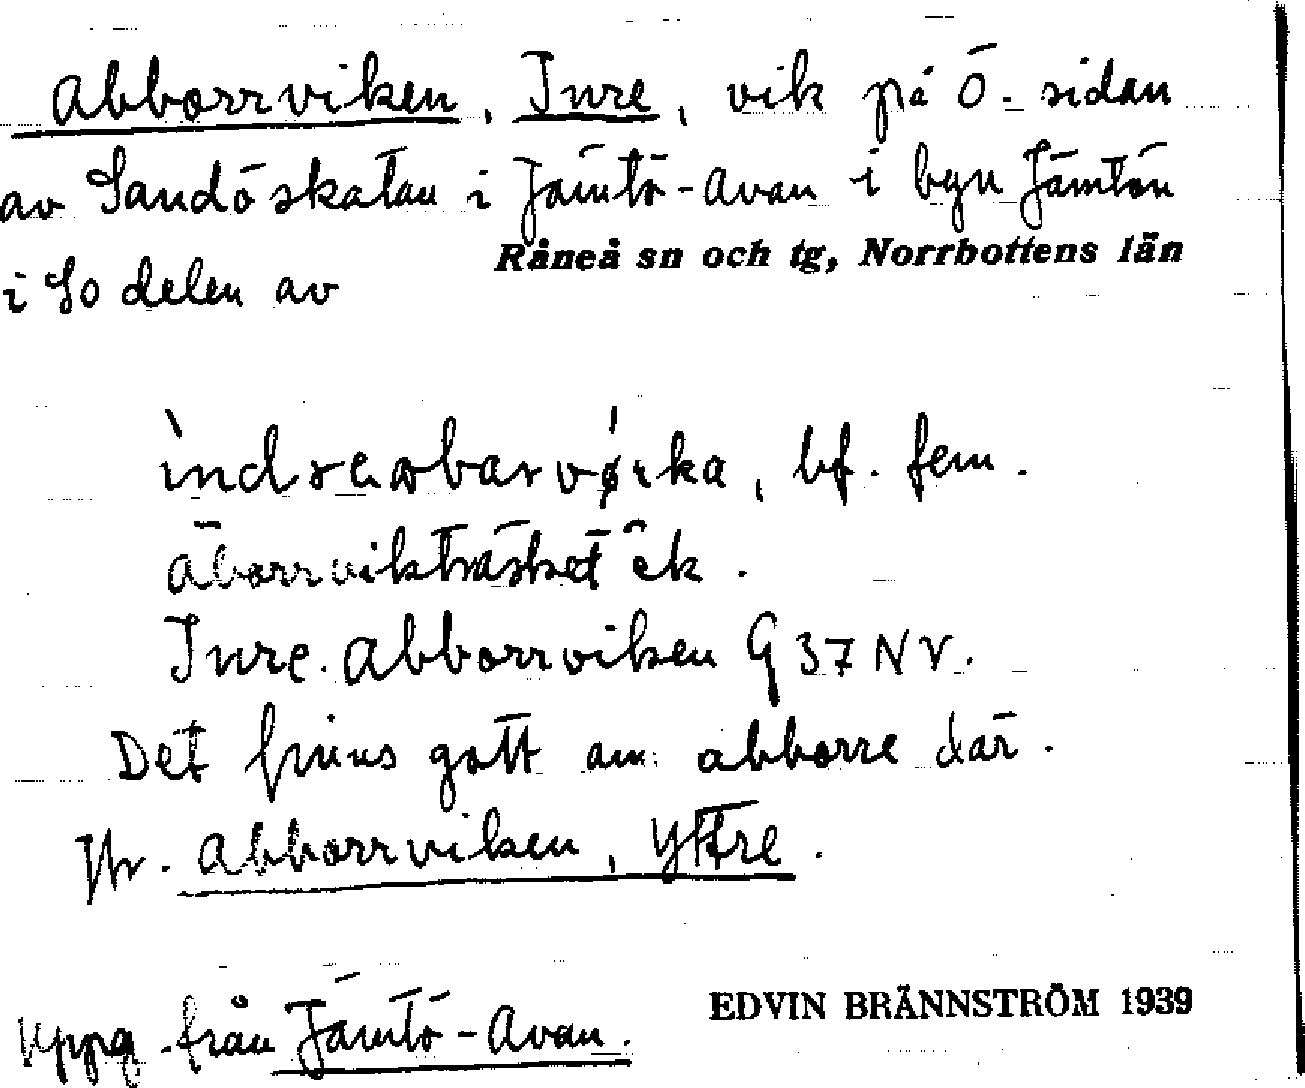 Abborrviken, Inre, vik på Ö. sidan
av Sandöskatan i Jämtö-Avan i byn Jämtön
Råneå sn och tg, Norrbottens län
i So delen av
bf. fem.
Åborrvikträsket ek.
Inre Abborrviken G 37 NV.
Det finns gott om abborre där.
Jfr. Abborrviken, Yttre.
EDVIN BRÄNNSTRÖM 1939
Uppg. från Jämtö-Avan.